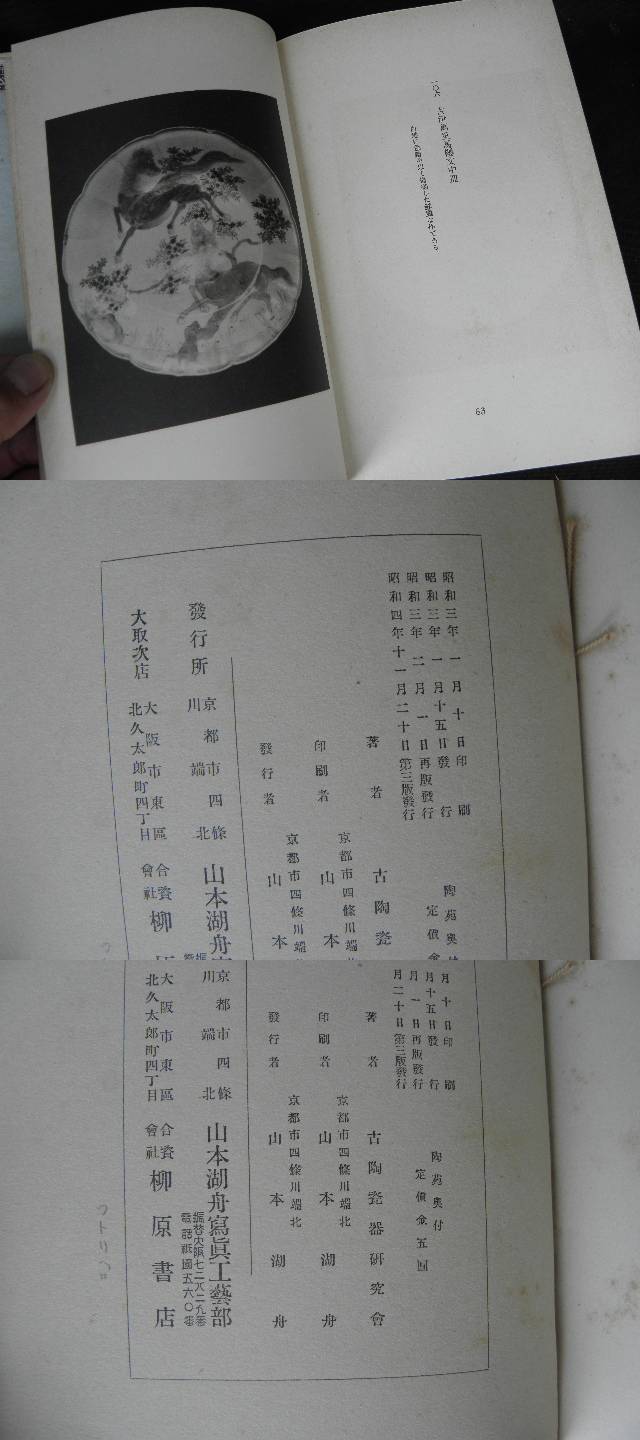 63
昭和三年一月十日印刷
昭和三年一月十五日發行
昭和三年二月一日再版發行
昭和四年十一月二十日第三版發行
陶苑奥
定價金
著者 古陶瓷
京都市四條川端
印刷者 山本
京都市四條川端
發行者 山本
發行所 京都市四條川端北 山本湖舟
大取次店 大阪市東區北久太郎町四丁目 合資會社 柳
月十日印刷
月十五日發行
月一日再版發行
月二十日第三版發行
陶苑奥付
定價金五圓
著者 古陶瓷器研究會
京都市四條川端北
印刷者 山本湖舟
京都市四條川端北
發行者 山本湖舟
京都市四條川端北 山本湖舟寫眞工藝部
振替大阪七二八二九番
電話祇園五六〇番
大阪市東區北久太郎町四丁目 合資會社 柳原書店